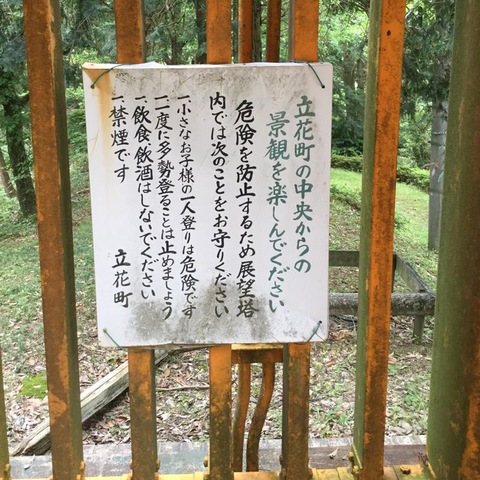 立花町の中央からの
景観を楽しんでください
危険を防止するため展望塔
内では次のことをお守りください
一、小さなお子様の一人登りは危険です
一、一度に多勢登ることは止めましょう
一、飲食、飲酒はしないでください
一、禁煙です
立花町